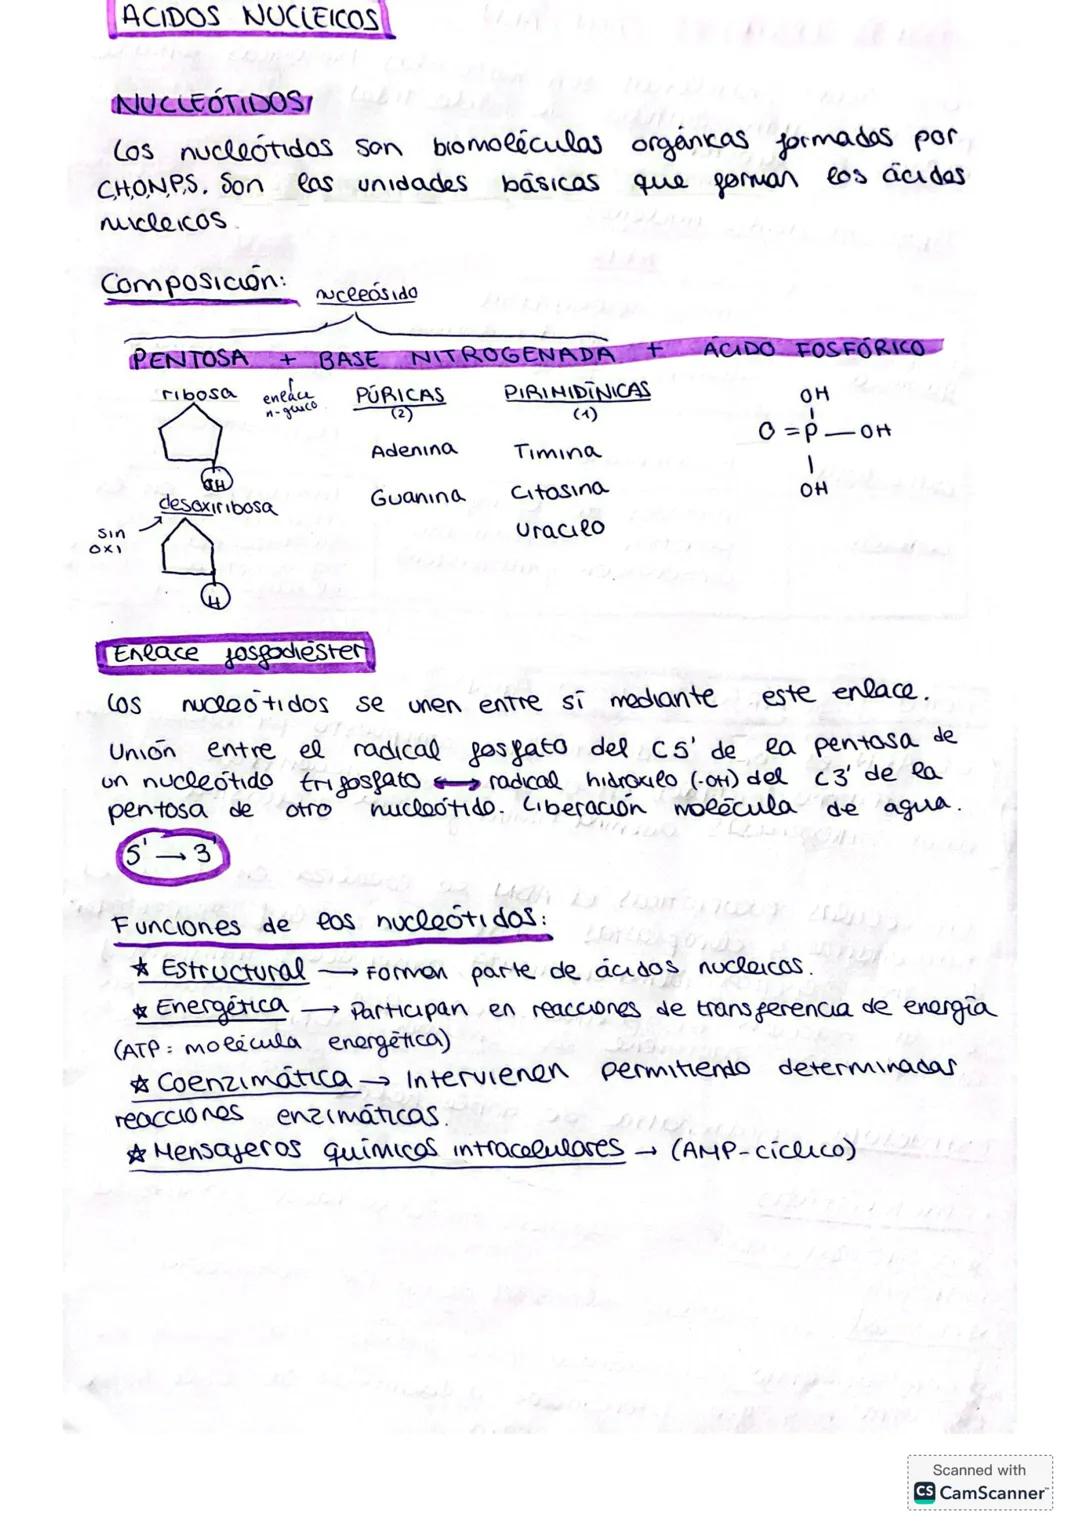 ACIDOS NUCLEICOS
NUCLEÓTIDOS
Los nucleótidos son biomoléculas orgánicas formadas por
C,H,O,N,P,S. Son las unidades básicas que forman los ácidos
nucleicos.
Composición:
nucleósido
PENTOSA + BASE NITROGENADA + ÁCIDO FOSFÓRICO
ribosa enlace PÚRICAS PIRIMIDÍNICAS OH
n-gluco (2) (1)
O = P — OH
Adenina Timina
OH desoxiribosa Guanina Citosina OH
sin Uracilo
oxi
H
Enlace fosfodiéster
Los nucleótidos se unen entre sí mediante este enlace.
Unión entre el radical fosfato del C5' de la pentosa de
un nucleótido trifosfato ⟷ radical hidroxilo (-OH) del C3' de la
pentosa de otro nucleótido. Liberación molécula de agua.
5' → 3'
Funciones de los nucleótidos:
☆ Estructural → Forman parte de ácidos nucleicos.
☆ Energética → Participan en reacciones de transferencia de energía
(ATP: molécula energética)
☆ Coenzimática → Intervienen permitiendo determinadas
reacciones enzimáticas.
☆ Mensajeros químicos intracelulares → (AMP-cíclico)
Scanned with
CS CamScanner